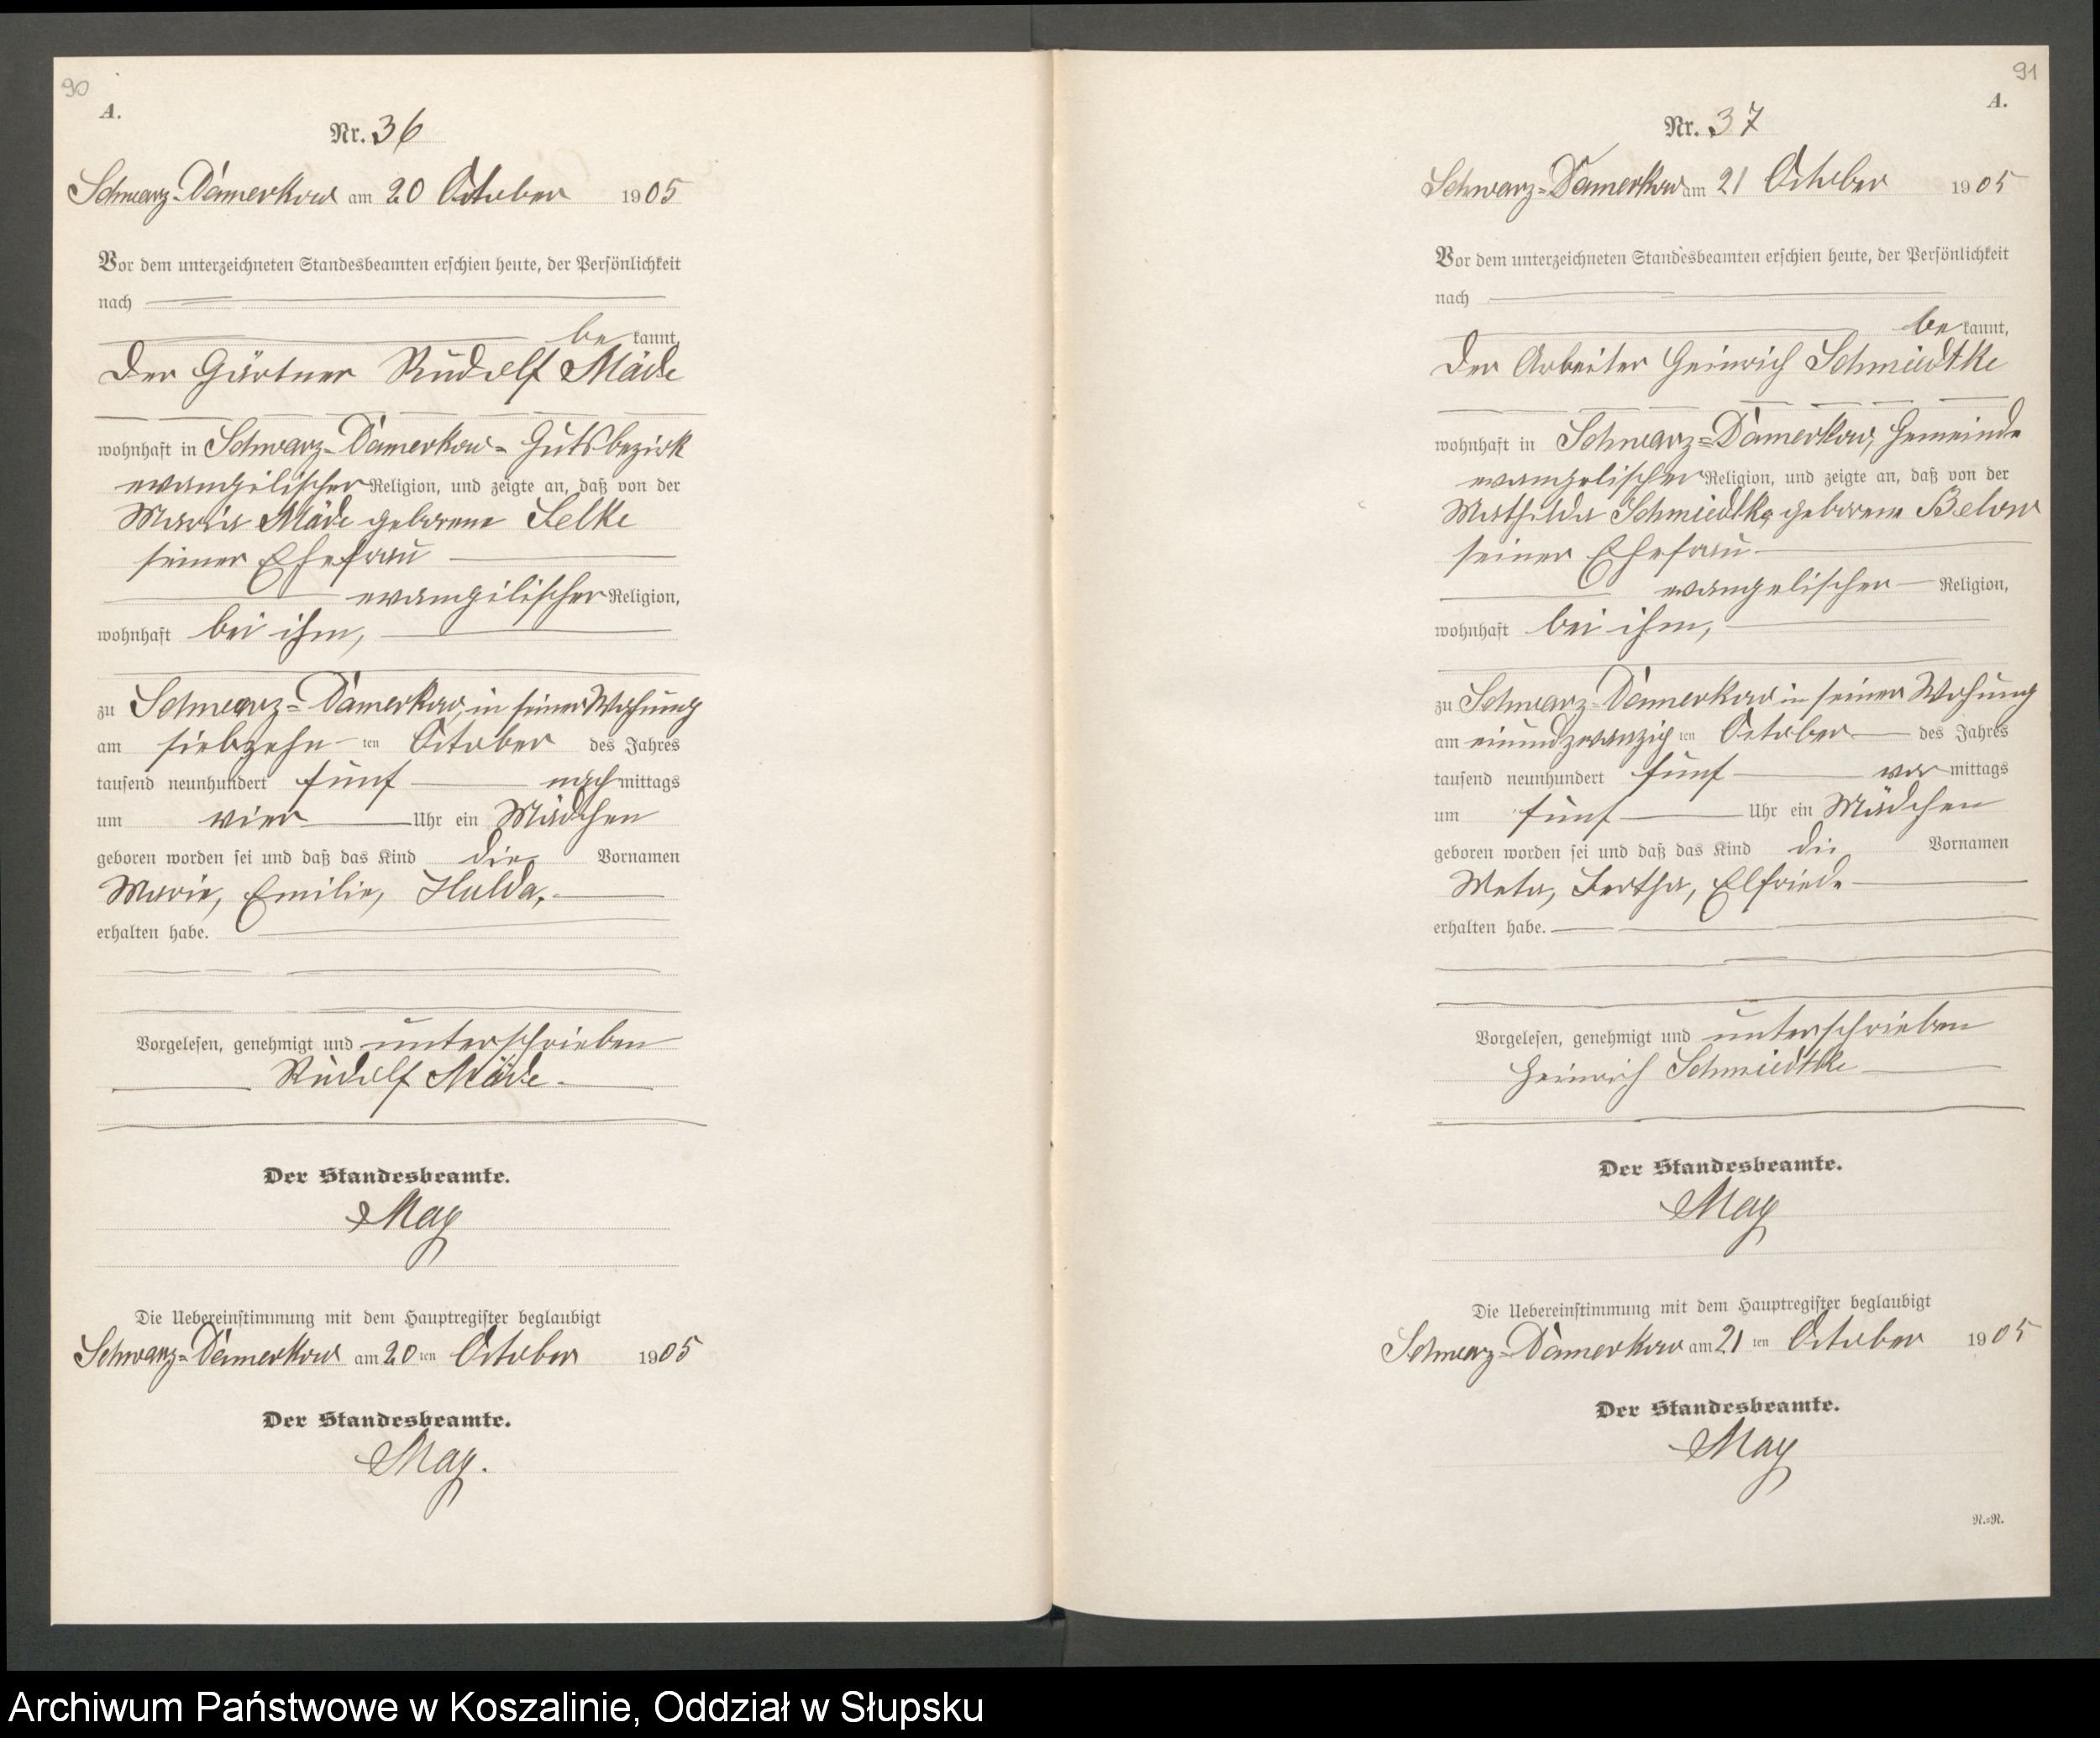 90
A.
Nr. 36
Schwarz-Damerkow am 20 October 1905
Vor dem unterzeichneten Standesbeamten erschien heute, der Persönlichkeit
nach
be kannt,
der Gärtner Rudolf Mäde
wohnhaft in Schwarz-Damerkow-Gutsbezirk
evangelischer Religion, und zeigte an, daß von der
Maria Mäde geborene Selke
seiner Ehefrau
evangelischer Religion,
wohnhaft bei ihm,
zu Schwarz-Damerkow, in seiner Wohnung
am siebzehn ten October des Jahres
tausend neunhundert fünf nach mittags
um vier Uhr ein Mädchen
geboren worden sei und daß das Kind die Vornamen
Marie, Emilie, Hulda,
erhalten habe.
Vorgelesen, genehmigt und unterschrieben
Rudolf Mäde
Der Standesbeamte.
May
Die Uebereinstimmung mit dem Hauptregister beglaubigt
Schwarz-Damerkow am 20 ten October 1905
Der Standesbeamte.
May.
91
A.
Nr. 37
Schwarz-Damerkow am 21 October 1905
Vor dem unterzeichneten Standesbeamten erschien heute, der Persönlichkeit
nach
be kannt,
der Arbeiter Heinrich Schmiedtke
wohnhaft in Schwarz-Damerkow, Gemeinde
evangelischer Religion, und zeigte an, daß von der
Mathilde Schmiedtke geborene Below
seiner Ehefrau
evangelischer Religion,
wohnhaft bei ihm,
zu Schwarz-Damerkow in seiner Wohnung
am einundzwanzig ten October des Jahres
tausend neunhundert fünf vor mittags
um fünf Uhr ein Mädchen
geboren worden sei und daß das Kind die Vornamen
Meta, Bertha, Elfriede
erhalten habe.
Vorgelesen, genehmigt und unterschrieben
Heinrich Schmiedtke
Der Standesbeamte.
May
Die Uebereinstimmung mit dem Hauptregister beglaubigt
Schwarz-Damerkow am 21 ten October 1905
Der Standesbeamte.
May
R.=R.
Archiwum Państwowe w Koszalinie, Oddział w Słupsku